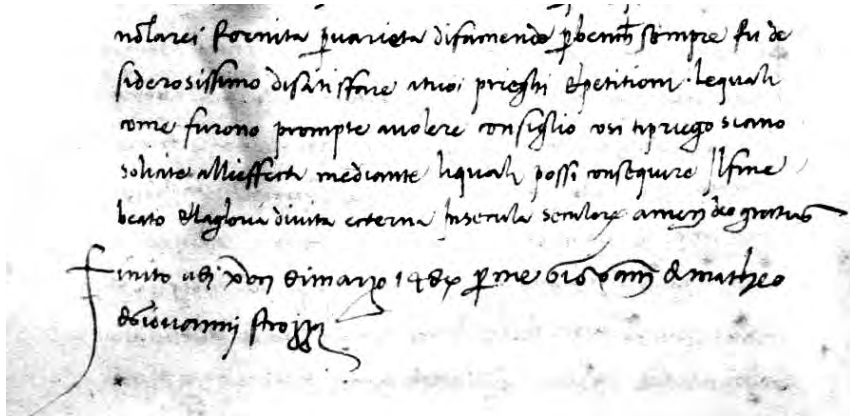 nõ larei fornita p varieta di facciende p bench sempre fu de
siderosissimo di satisffare a tuoi prieghi & petitioni lequali
come furono prompte a volere consiglio cosi ti priego siano
solicite alli effecti mediante liquali possi conseguire il fine
beato & la gloria di vita ecterna In secula seculor amen deo gratias
Finito a di di marzo 148 p me di matheo
di Giovanni strozzi